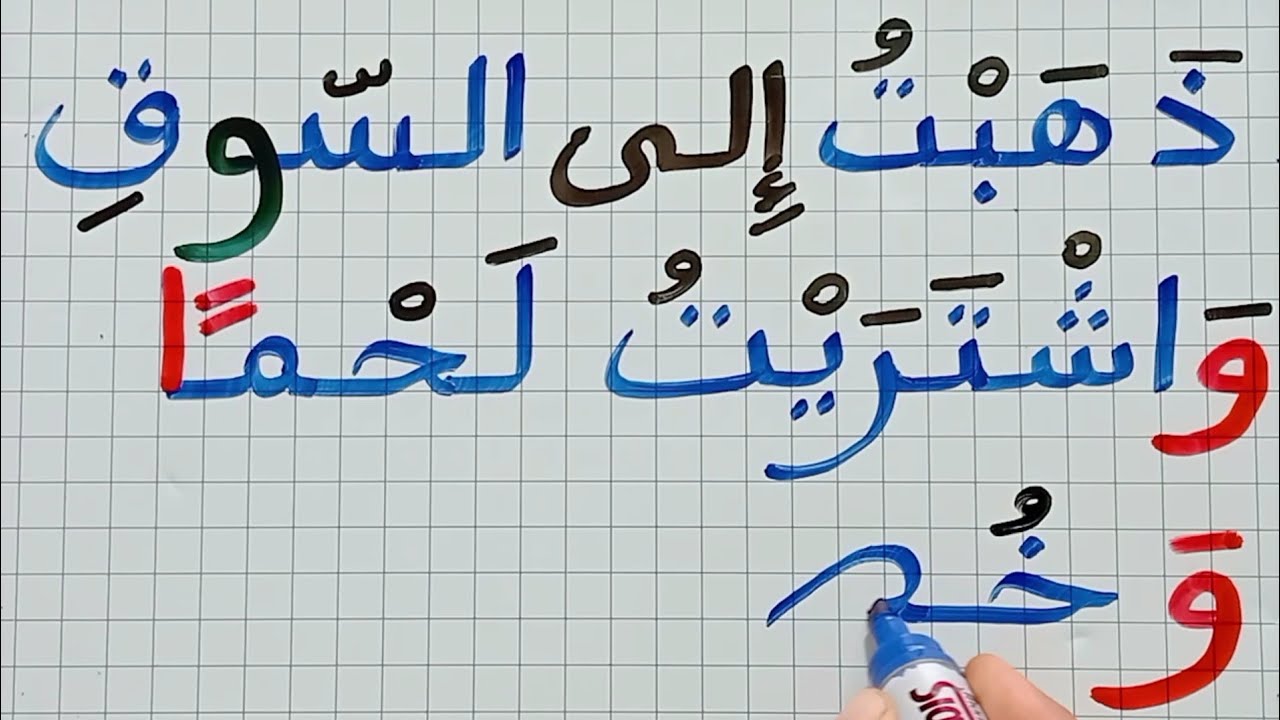 ذَهَبْتُ إِلى السّوقِ
وَاشْتَرَيْتُ لَحْمًا
وَ